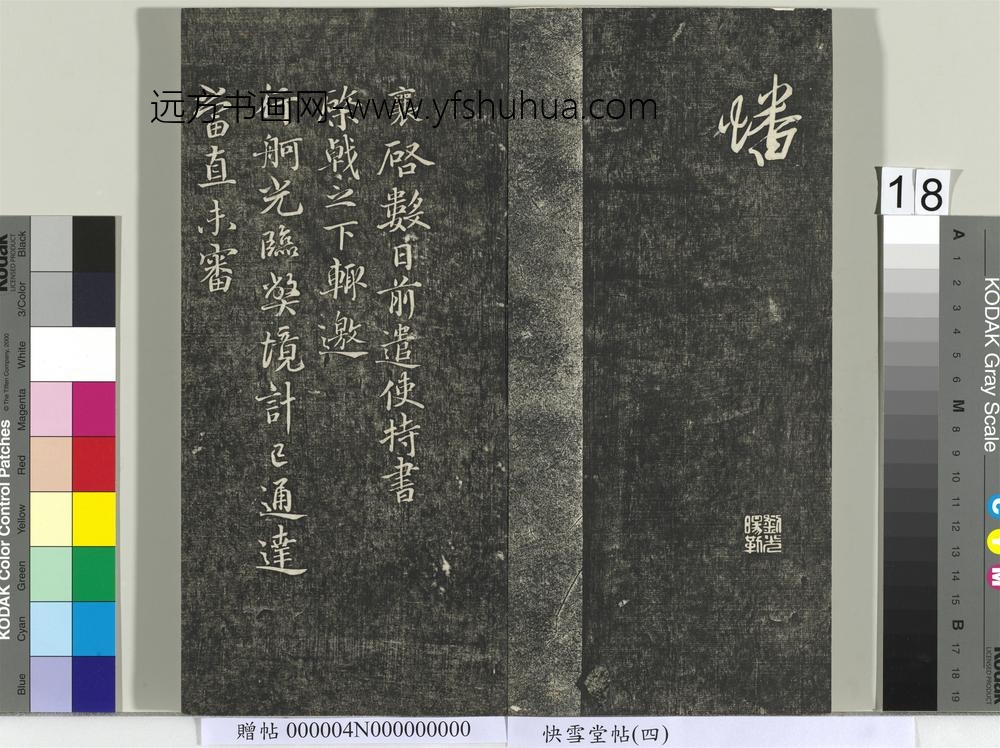 皤
劉光
暘勒
襄啓數日前遣使持書
棨戟之下輒邀
何舸光臨獘境計已通達
當直未審
远方书画网-www.yfshuhua.com
18
贈帖 000004N000000000
快雪堂帖(四)
KODAK Color Control Patches
© The Tiffen Company, 2000
Kodak
LICENSED PRODUCT
Blue
Cyan
Green
Yellow
Red
Magenta
White
3/Color
Black
KODAK Gray Scale
C
Y
M
Kodak
LICENSED PRODUCT
A 1 2 3 4 5 6 M 8 9 10 11 12 13 14 15 B 17 18 19